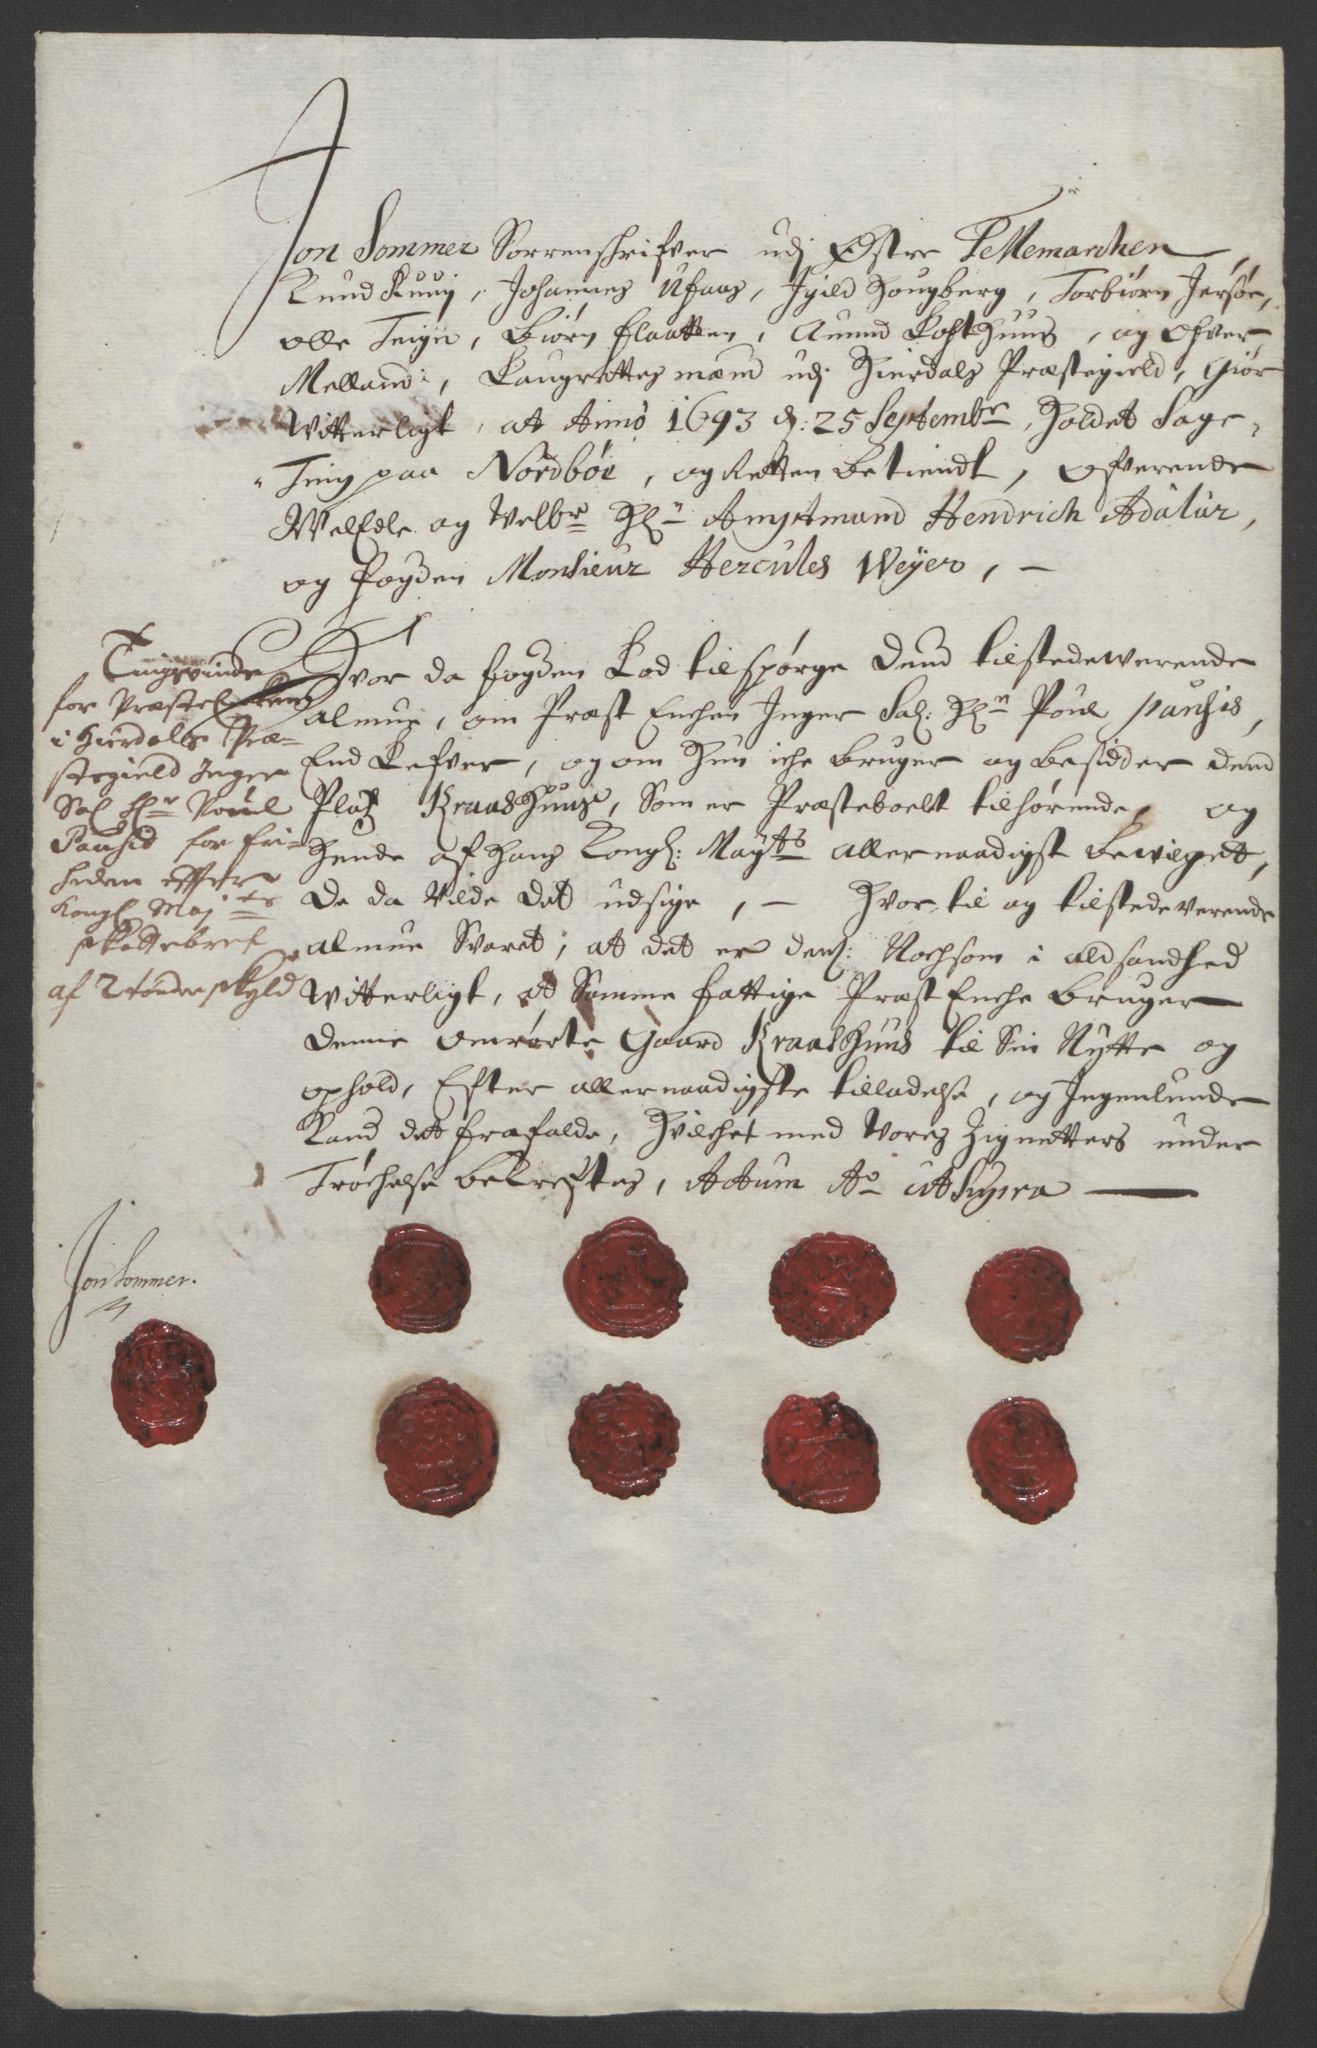 Jon Sommer Sorrenschrifver udj Østre Tellemarchen,
Knud Kuuig, Johannes Ufaas, Igild Hougberg, Torbiørn Jersøe,
olle Teigii, Biørn Flaatten, Aamund Lofthuus, og Ofver
Melland:, Laugrettes mænd udj Hierdals Præstegield, Giør
Witterligt, at Anno 1693 d: 25 Septembr, holdet Sage-
Ting paa Nordbøe, og Retten betiendt, ofverende
WelEdle og Welbr Hr Ambtmand Hendrich Adalur,
og fogden Monsieur Hercules Weyer, -
Tingsvinde
for PræsteEncken
i Hierdals Præ-
stegield Inger
Sal Hr Pouel
Pausis for fri-
heden effter
Kongl Maj:ts
skattebref
af 2 tønder skyld
Hvor da fogden Lod tilspørge Dend tilstedewerende
almue, om Præst Enchen Inger Sal: Hr Poul Pausis,
End Lefver, og om Hun iche bruger og besidder dend
Platz Kraashuus, Som er Præsteboelt tilhørende, og
Hende af Hans Kongl: Mayts allernaadigst bevilget,
De da Vilde det udsige, - Hvor til og tilstedeverende
almue Svaret, at det er dem: Nochsom i ald sandhed
Witterligt, at Samme fattige Præst Enche bruger
denne omrørte Gaard Kraashuus til Sin Nytte og
ophold, Efter allernaadigste tilladelse, og Ingenlunde
Kand det frafalde, Hvilchet med Vores Zignetters under
Trøchelse bekreftes, Actum Ao ut Supra
Jon Sommer.